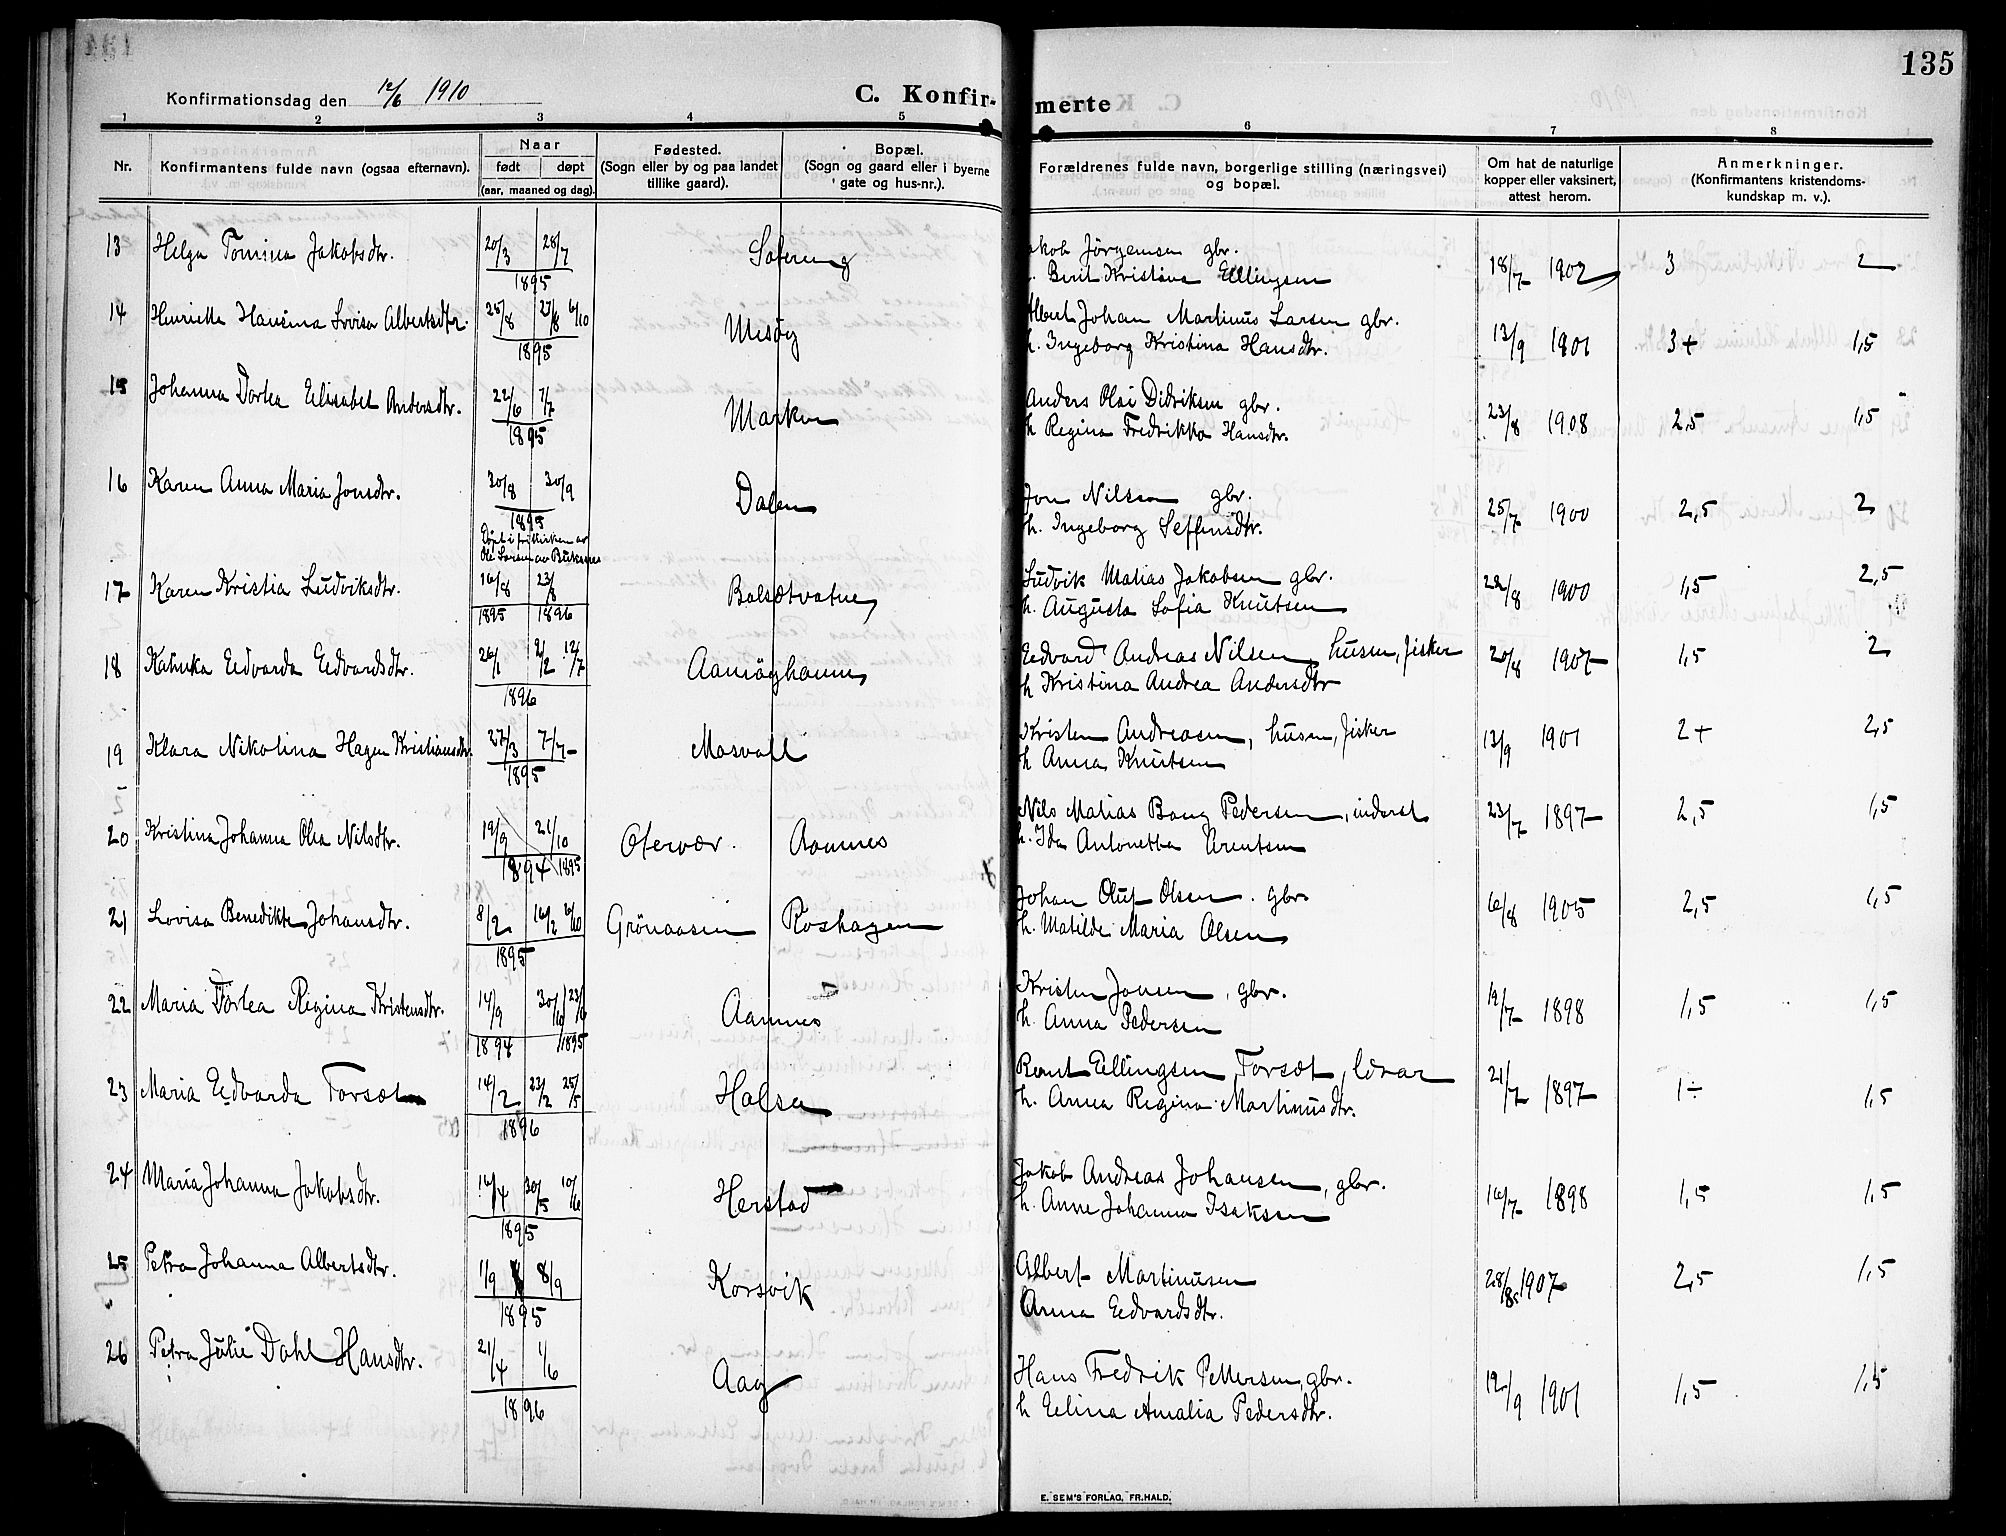 135
Konfirmationsdag den 12/6 1910
C. Konfir-
merte
1 2 3 4 5 6 7 8
Nr.
Konfirmantens fulde navn (ogsaa efternavn).
Naar
født døpt
(aar, maaned og dag).
Fødested.
(Sogn eller by og paa landet
tillike gaard).
Bopæl.
(Sogn og gaard eller i byerne
gate og hus-nr.).
Forældrenes fulde navn, borgerlige stilling (næringsvei)
og bopæl.
Om hat de naturlige
kopper eller vaksinert,
attest herom.
Anmerkninger.
(Konfirmantens kristendoms-
kundskap m. v.).
13 Helga Tomina Jakobsdtr. 20/3 28/7
1895
akob Jørgensen gbr.
Berit Kristine Ellingsen
18/7 1902 3 2
14 Henriette Hansina Lovisa Albertsdtr. 25/8 27/8 6/10
1895
Mesøy
Albert Johan Martinus Larsen gbr.
h. Ingeborg Kristina Hansdtr.
13/9 1901 3+ 1,5
15 Johanna Dortea Elisabet Andersdtr. 22/6 7/7
1895
Marken
Anders Olai Didriksen gbr.
h Regina Fredrikka Hansdtr.
23/8 1908 2,5 1,5
16 Karen Anna Maria Jonsdtr. 30/8 30/9
1895
Døpt i frikirken av
Ole Larsen av Buksnes
Dalen
Jon Nilsen gbr.
h. Ingeborg Seffensdtr.
25/7 1900 2,5 2
17 Karen Kristia Ludviksdtr. 16/8 23/8
1895 1896
Balsætvatne
Ludvik Matias Jakobsen gbr.
h. Augusta Sofia Knutsen
22/8 1900 1,5 2,5
18 Katinka Edvarda Edvardsdtr. 26/1 2/2 12/7
1896
Aamøyhamn
Edvard Andreas Nilsen, husm, fisker
h Kristina Andrea Andersdtr
20/8 1907 1,5 2
19 Klara Nikolina Hagen Kristiansdtr. 27/3 7/7
1895
Mosvoll
Kristen Andreasen, husm, fisker
h Anna Knutsen
13/9 1901 2+ 2,5
20 Kristina Johanna Olea Nilsdtr. 19/9 21/10
1894 1895
Otervær. Aamnes
Nils Matias Bang Pedersen, inderst
h. Ida Antonetta Arentsen
23/7 1897 2,5 1,5
21 Lovisa Benedikte Johansdtr. 8/2 16/2 6/10
1895
Grönaasen Roshagen
Johan Oluf Olsen. gbr
h. Matilde Maria Olsen
16/8 1905 2,5 1,5
22 Maria Dortea Regina Kristensdtr. 14/9 30/10 23/6
1894 1895
Aamnes
Kristen Jonsen, gbr.
h. Anna Pedersen
19/7 1898 1,5 1,5
23 Maria Edvarda Forsæt 14/2 23/2 25/5
1896
Halsa
Bernt Ellingsen Forsæt, lærar
h. Anna Regina Martinusdtr.
21/7 1897 1÷ 1,5
24 Maria Johanna Jakobsdtr. 16/4 30/5 10/6
1895
Herstad
Jakob Andreas Johansen, gbr.
h. Anne Johanna Isaksen
16/7 1898 1,5 1,5
25 Petra Johanna Albertsdtr. 1/9 8/9
1895
Korsvik
Albert Martinusen
Anna Edvardsdtr.
28/8 1907 2,5 1,5
26 Petra Julie Dahl Hansdtr. 21/4 1/6
1896
Aag
Hans Fredrik Pettersen, gbr.
h Elina Amalia Pedersdtr.
12/9 1901 1,5 1,5
E. SEM'S FORLAG, FR.HALD.